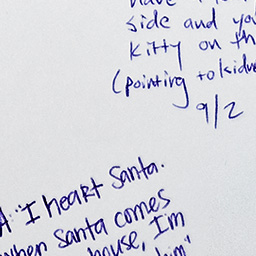 side and yo
kitty on th
(pointing to kidne
9/2
A: "I heart Santa.
when Santa comes
house, I'm